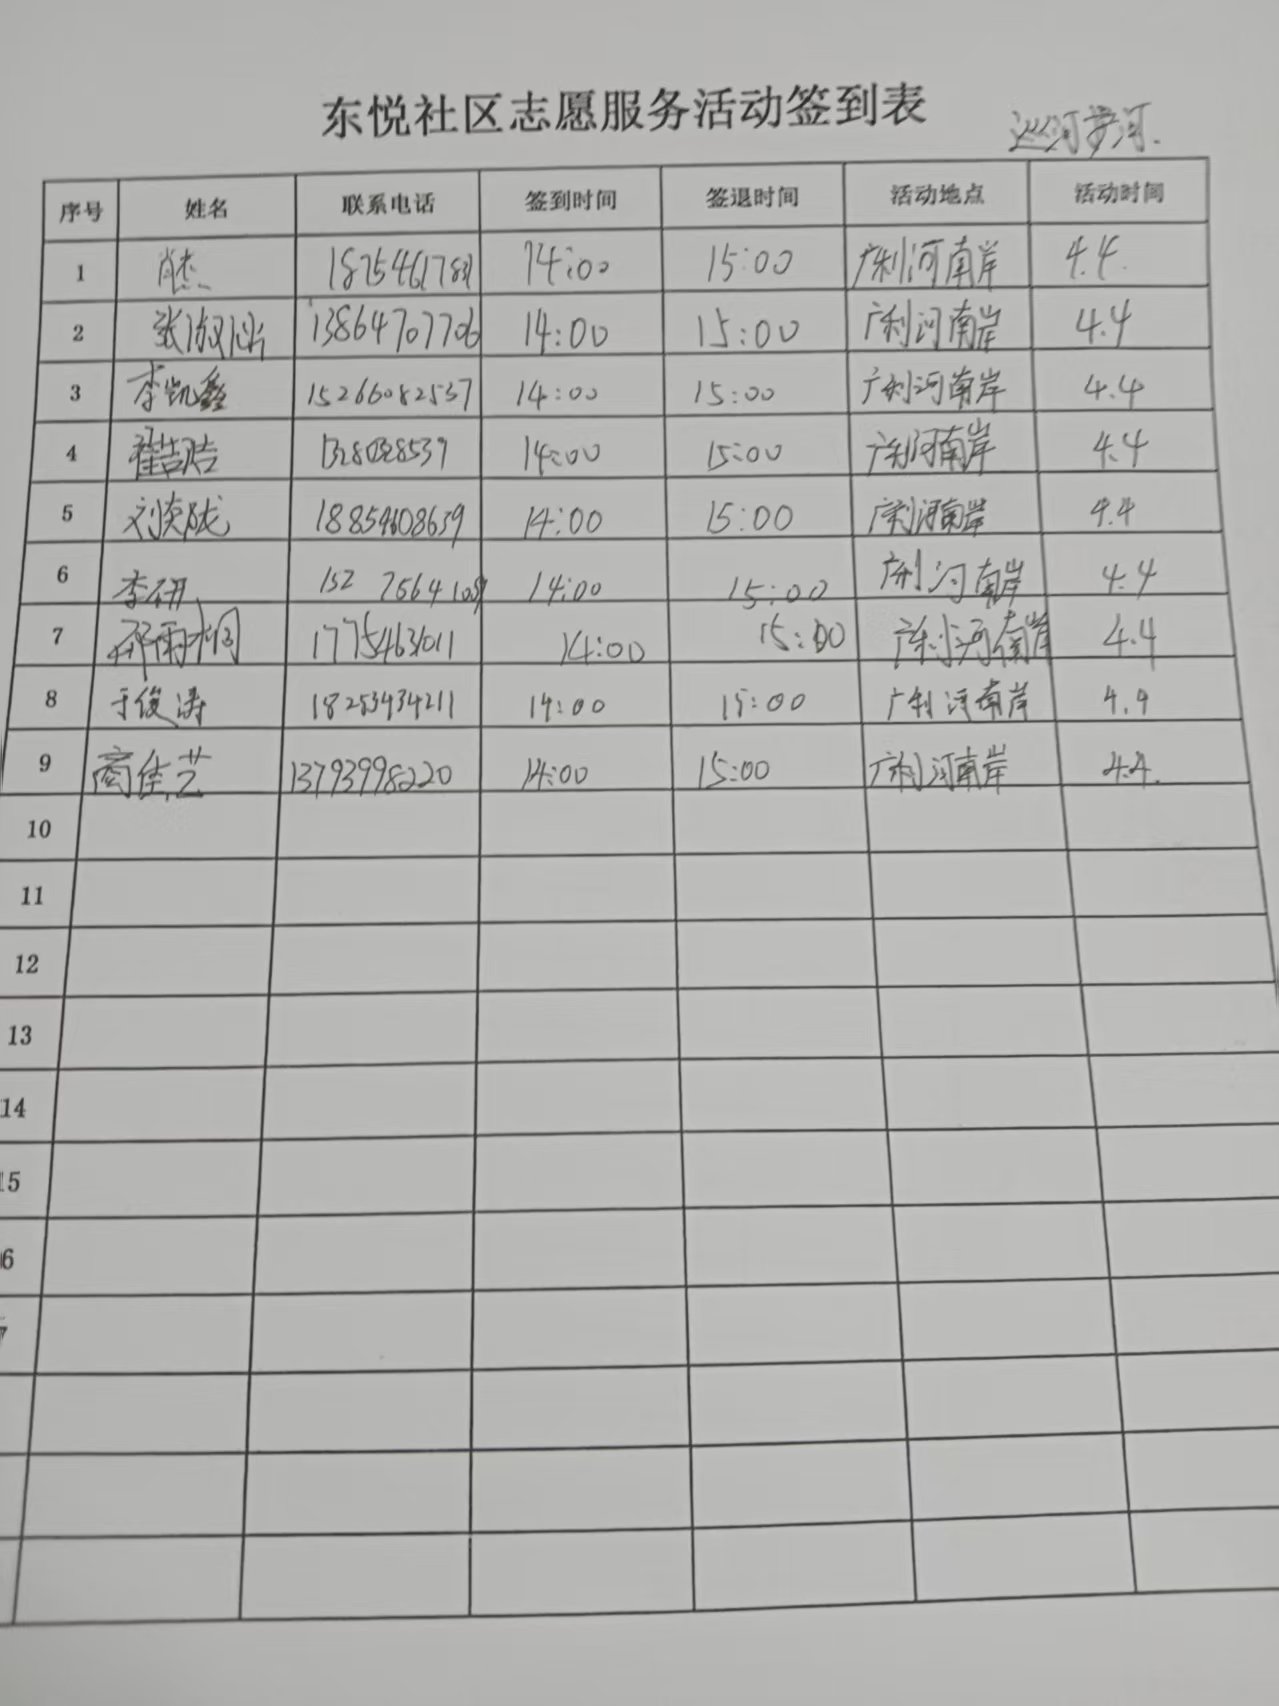 东悦社区志愿服务活动签到表
巡河护河.
序号 姓名 联系电话 签到时间 签退时间 活动地点 活动时间
1 肖杰 14:00 15:00 广利河南岸 4.4.
2 13864707706 14:00 15:00 广利河南岸 4.4
3 李凯鑫 15266082537 14:00 15:00 广利河南岸 4.4
4 1328028539 14:00 15:00 广利河南岸 4.4
5 刘奕陇 18854608639 14:00 15:00 广利河南岸 4.4
6 李研 14:00 15:00 广利河南岸 4.4
7 17754631011 14:00 15:00 广利河南岸 4.4
8 于俊涛 18253434211 14:00 15:00 广利河南岸 4.4
9 商佳艺 13793998220 14:00 15:00 广利河南岸 4.4.
10
11
12
13
14
15
6
7